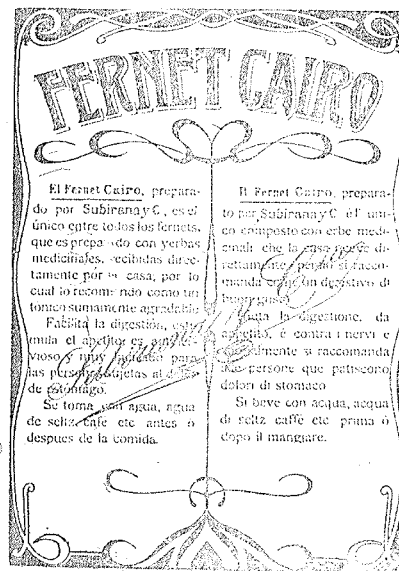 FERNET CAIRO
El Fernet Cairo, prepara-
do por Subirana y C, es el
único entre todos los fernets,
que es prepa do con yerbas
medicinales, recibidas direc-
tamente por casa, por lo
cual lo recom ndo como un
tónico sumamente agradable
Facilita la digestión, est
mula el apetito es
vioso y muy para
las person sujetas al
de estómago.
Se toma con agua, agua
de seltz, café etc antes ó
despues de la comida.
Il Fernet Cairo, prepara-
to per Subirana y C é l' uni-
co composto con erbe medi-
cinali che la casa riceve di-
rettamente, perció si racco-
manda come un digestivo di
buon gusto
la digestione, da
appetito, é contra i nervi e
si raccomanda
persone che patiscono
dolori di stomaco
Si beve con acqua, acqua
di seltz caffé etc prima ó
dopo il mangiare.